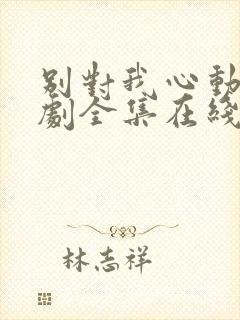 別對我心動
劇全集在綫
林志祥